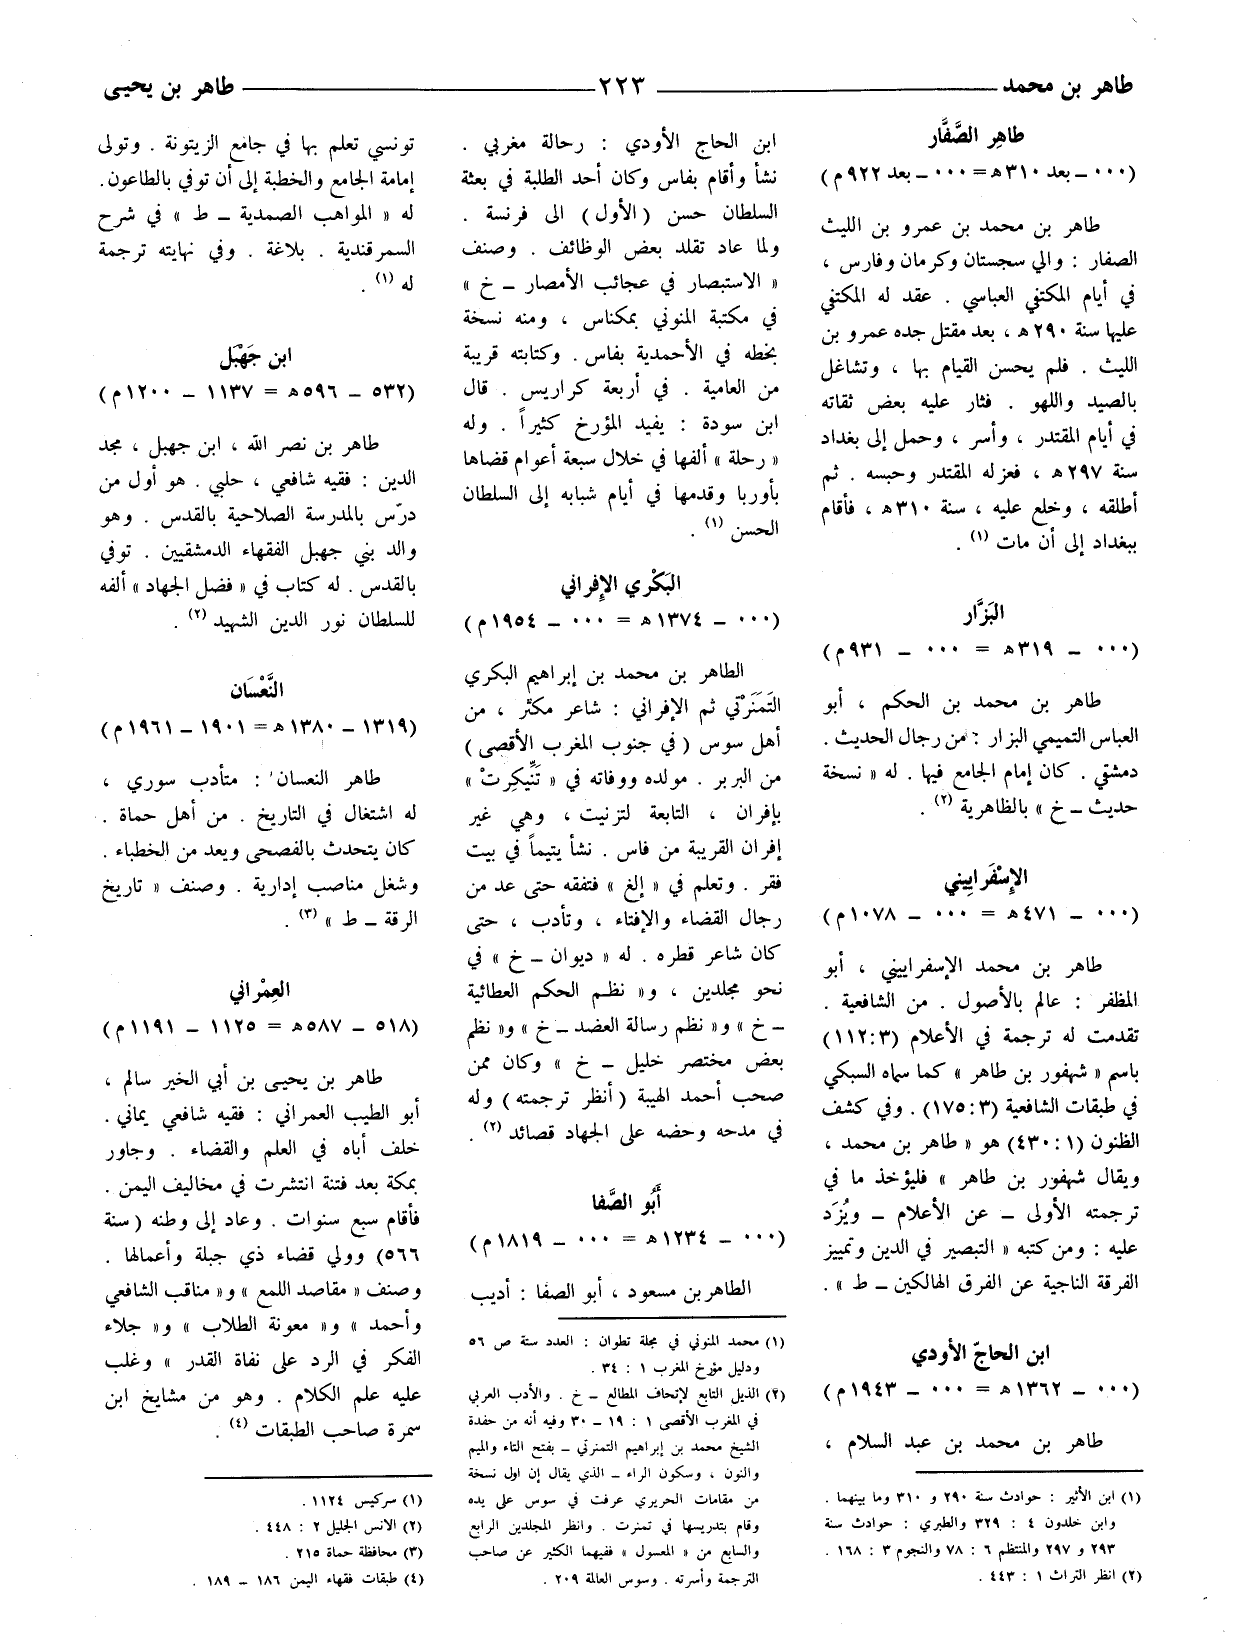 طاهر بن محمد ــــــ ٢٢٣ ــــــ طاهر بن يحيى
طاهِر الصَّفَّار
(٠٠٠ ــ بعد ٣١٠ هـ = ٠٠٠ ــ بعد ٩٢٢ م)
طاهر بن محمد بن عمرو بن الليث
الصفار : والي سجستان وكرمان وفارس ،
في أيام المكتفي العباسي . عقد له المكتفي
عليها سنة ٢٩٠ هـ ، بعد مقتل جده عمرو بن
الليث . فلم يحسن القيام بها ، وتشاغل
بالصيد واللهو . فثار عليه بعض ثقاته
في أيام المقتدر ، وأسر ، وحمل إلى بغداد
سنة ٢٩٧ هـ ، فعزله المقتدر وحبسه . ثم
أطلقه ، وخلع عليه ، سنة ٣١٠ هـ ، فأقام
ببغداد إلى أن مات (١) .
البَزَّار
(٠٠٠ ــ ٣١٩ هـ = ٠٠٠ ــ ٩٣١ م)
طاهر بن محمد بن الحكم ، أبو
العباس التميمي البزار : من رجال الحديث .
دمشقي . كان إمام الجامع فيها . له « نسخة
حديث ــ خ » بالظاهرية (٢) .
الإِسْفَراييني
(٠٠٠ ــ ٤٧١ هـ = ٠٠٠ ــ ١٠٧٨ م)
طاهر بن محمد الإسفراييني ، أبو
المظفر : عالم بالأصول . من الشافعية .
تقدمت له ترجمة في الأعلام (٣ : ١١٢)
باسم « شهفور بن طاهر » كما سماه السبكي
في طبقات الشافعية (٣ : ١٧٥) . وفي كشف
الظنون (١ : ٤٣٠) هو « طاهر بن محمد ،
ويقال شهفور بن طاهر » فليؤخذ ما في
ترجمته الأولى ــ عن الأعلام ــ ويُزَد
عليه : ومن كتبه « التبصير في الدين وتمييز
الفرقة الناجية عن الفرق الهالكين ــ ط » .
ابن الحاجّ الأودي
(٠٠٠ ــ ١٣٦٢ هـ = ٠٠٠ ــ ١٩٤٣ م)
طاهر بن محمد بن عبد السلام ،
(١) ابن الأثير : حوادث سنة ٢٩٠ و ٣١٠ وما بينهما .
وابن خلدون ٤ : ٣٢٩ والطبري : حوادث سنة
٢٩٣ و ٢٩٧ والمنتظم ٦ : ٧٨ والنجوم ٣ : ١٦٨ .
(٢) انظر التراث ١ : ٤٤٣ .
ابن الحاج الأودي : رحالة مغربي .
نشأ وأقام بفاس وكان أحد الطلبة في بعثة
السلطان حسن (الأول) الى فرنسة .
ولما عاد تقلد بعض الوظائف . وصنف
« الاستبصار في عجائب الأمصار ــ خ »
في مكتبة المنوني بمكناس ، ومنه نسخة
بخطه في الأحمدية بفاس . وكتابته قريبة
من العامية . في أربعة كراريس . قال
ابن سودة : يفيد المؤرخ كثيراً . وله
« رحلة » ألفها في خلال سبعة أعوام قضاها
بأوربا وقدمها في أيام شبابه إلى السلطان
الحسن (١) .
البَكْري الإِفراني
(٠٠٠ ــ ١٣٧٤ هـ = ٠٠٠ ــ ١٩٥٤ م)
الطاهر بن محمد بن إبراهيم البكري
التَمَنَرْتي ثم الإفراني : شاعر مكثر ، من
أهل سوس (في جنوب المغرب الأقصى)
من البربر . مولده ووفاته في « تَنْيكِرتْ »
بإفران ، التابعة لتزنيت ، وهي غير
إفران القريبة من فاس . نشأ يتيماً في بيت
فقر . وتعلم في « إلغ » فتفقه حتى عد من
رجال القضاء والإفتاء ، وتأدب ، حتى
كان شاعر قطره . له « ديوان ــ خ » في
نحو مجلدين ، و« نظم الحكم العطائية
ــ خ » و« نظم رسالة العضد ــ خ » و« نظم
بعض مختصر خليل ــ خ » وكان ممن
صحب أحمد الهيبة (أنظر ترجمته) وله
في مدحه وحضه على الجهاد قصائد (٢) .
أَبُو الصَّفا
(٠٠٠ ــ ١٢٣٤ هـ = ٠٠٠ ــ ١٨١٩ م)
الطاهر بن مسعود ، أبو الصفا : أديب
(١) محمد المنوني في مجلة تطوان : العدد ستة ص ٥٦
ودليل مؤرخ المغرب ١ : ٣٤ .
(٢) الذيل التابع لإتحاف المطالع ــ خ . والأدب العربي
في المغرب الأقصى ١ : ١٩ ــ ٣٠ وفيه أنه من حفدة
الشيخ محمد بن إبراهيم التمنرتي ــ بفتح التاء والميم
والنون ، وسكون الراء ــ الذي يقال إن اول نسخة
من مقامات الحريري عرفت في سوس على يده
وقام بتدريسها في تمنرت . وانظر المجلدين الرابع
والسابع من « المعسول » ففيهما الكثير عن صاحب
الترجمة وأسرته . وسوس العالمة ٢٠٩ .
تونسي تعلم بها في جامع الزيتونة . وتولى
إمامة الجامع والخطبة إلى أن توفي بالطاعون .
له « المواهب الصمدية ــ ط » في شرح
السمرقندية . بلاغة . وفي نهايته ترجمة
له (١) .
ابن جَهْبَل
(٥٣٢ ــ ٥٩٦ هـ = ١١٣٧ ــ ١٢٠٠ م)
طاهر بن نصر الله ، ابن جهبل ، مجد
الدين : فقيه شافعي ، حلبي . هو أول من
درّس بالمدرسة الصلاحية بالقدس . وهو
والد بني جهبل الفقهاء الدمشقيين . توفي
بالقدس . له كتاب في « فضل الجهاد » ألفه
للسلطان نور الدين الشهيد (٢) .
النَّعْسَان
(١٣١٩ ــ ١٣٨٠ هـ = ١٩٠١ ــ ١٩٦١ م)
طاهر النعسان : متأدب سوري ،
له اشتغال في التاريخ . من أهل حماة .
كان يتحدث بالفصحى ويعد من الخطباء .
وشغل مناصب إدارية . وصنف « تاريخ
الرقة ــ ط » (٣) .
العِمْراني
(٥١٨ ــ ٥٨٧ هـ = ١١٢٥ ــ ١١٩١ م)
طاهر بن يحيى بن أبي الخير سالم ،
أبو الطيب العمراني : فقيه شافعي يماني .
خلف أباه في العلم والقضاء . وجاور
بمكة بعد فتنة انتشرت في مخاليف اليمن .
فأقام سبع سنوات . وعاد إلى وطنه (سنة
٥٦٦) وولي قضاء ذي جبلة وأعمالها .
وصنف « مقاصد اللمع » و« مناقب الشافعي
وأحمد » و« معونة الطلاب » و« جلاء
الفكر في الرد على نفاة القدر » وغلب
عليه علم الكلام . وهو من مشايخ ابن
سمرة صاحب الطبقات (٤) .
(١) سركيس ١١٢٤ .
(٢) الانس الجليل ٢ : ٤٤٨ .
(٣) محافظة حماة ٢١٥ .
(٤) طبقات فقهاء اليمن ١٨٦ ــ ١٨٩ .